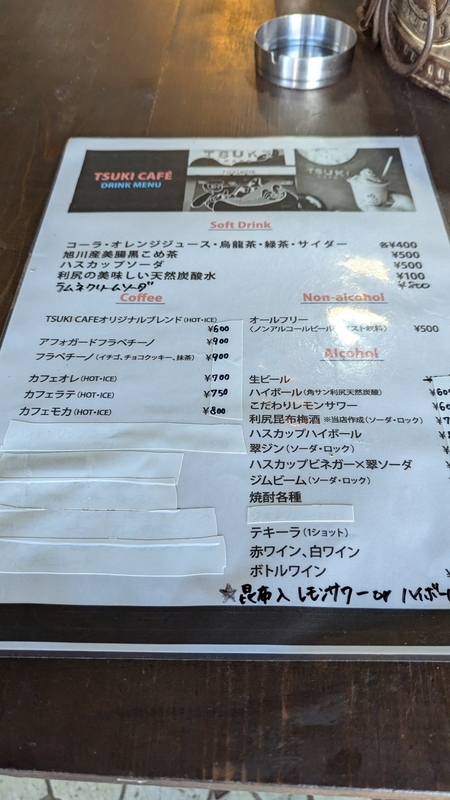 TSUKI CAFÉ
DRINK MENU
TSUKI
TSUKI
Soft Drink
コーラ・オレンジジュース・烏龍茶・緑茶・サイダー 各¥400
旭川産美腸黒こめ茶 ¥500
ハスカップソーダ ¥500
利尻の美味しい天然炭酸水 ¥100
ラムネクリームソーダ ¥800
Coffee
TSUKI CAFEオリジナルブレンド(HOT・ICE) ¥600
アフォガードフラペチーノ ¥900
フラペチーノ(イチゴ、チョコクッキー、抹茶) ¥900
カフェオレ(HOT・ICE) ¥700
カフェラテ(HOT・ICE) ¥750
カフェモカ(HOT・ICE) ¥800
Non-alcohol
オールフリー
(ノンアルコールビールテイスト飲料) ¥500
Alcohol
生ビール
ハイボール(角サン利尻天然炭酸)
こだわりレモンサワー
利尻昆布梅酒 ※当店作成(ソーダ・ロック)
ハスカップハイボール
翠ジン(ソーダ・ロック)
ハスカップビネガー×翠ソーダ
ジムビーム(ソーダ・ロック)
焼酎各種
テキーラ(1ショット)
赤ワイン、白ワイン
ボトルワイン
☆昆布入 レモンサワー or ハイボー